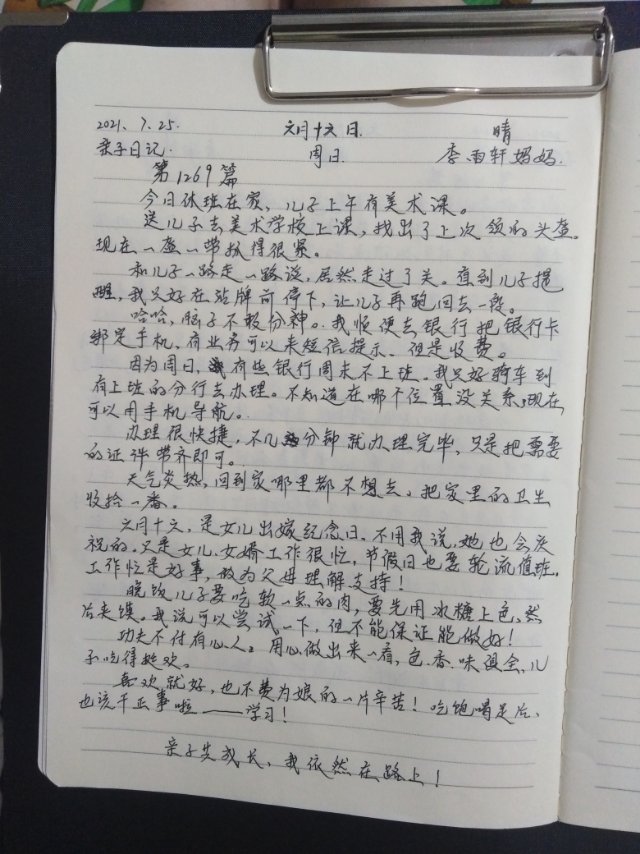 2021. 7. 25. 六月十六日. 晴
亲子日记. 周日. 李雨轩妈妈.
第1269篇
今日休班在家, 儿子上午有美术课。
送儿子去美术学校上课, 找出了上次领的头盔。
现在一盔一带抓得很紧。
和儿子一路走一路说, 居然走过了关。直到儿子提
醒, 我只好在站牌前停下, 让儿子再跑回去一段。
哈哈, 脑子不敢分神。我顺便去银行把银行卡
绑定手机, 有业务可以来短信提示、但是收费。
因为周日, 有些银行周末不上班。我只好骑车到
有上班的分行去办理。不知道在哪个位置没关系, 现在
可以用手机导航。
办理很快捷, 不几分钟就办理完毕, 只是把需要
的证件带齐即可。
天气炎热, 回到家哪里都不想去, 把家里的卫生
收拾一番。
六月十六, 是女儿出嫁纪念日, 不用我说, 她也会庆
祝的, 只是女儿、女婿工作很忙, 节假日也要轮流值班,
工作忙是好事, 做为父母理解支持!
晚饭儿子要吃软一点的肉, 要先用冰糖上色, 然
后来馍。我说可以尝试一下, 但不能保证能做好!
功夫不付有心人。用心做出来一看, 色、香、味俱全, 儿
子吃得挺欢。
喜欢就好, 也不费为娘的一片辛苦! 吃饱喝足后,
也该干正事啦——学习!
亲子共成长, 我依然在路上!